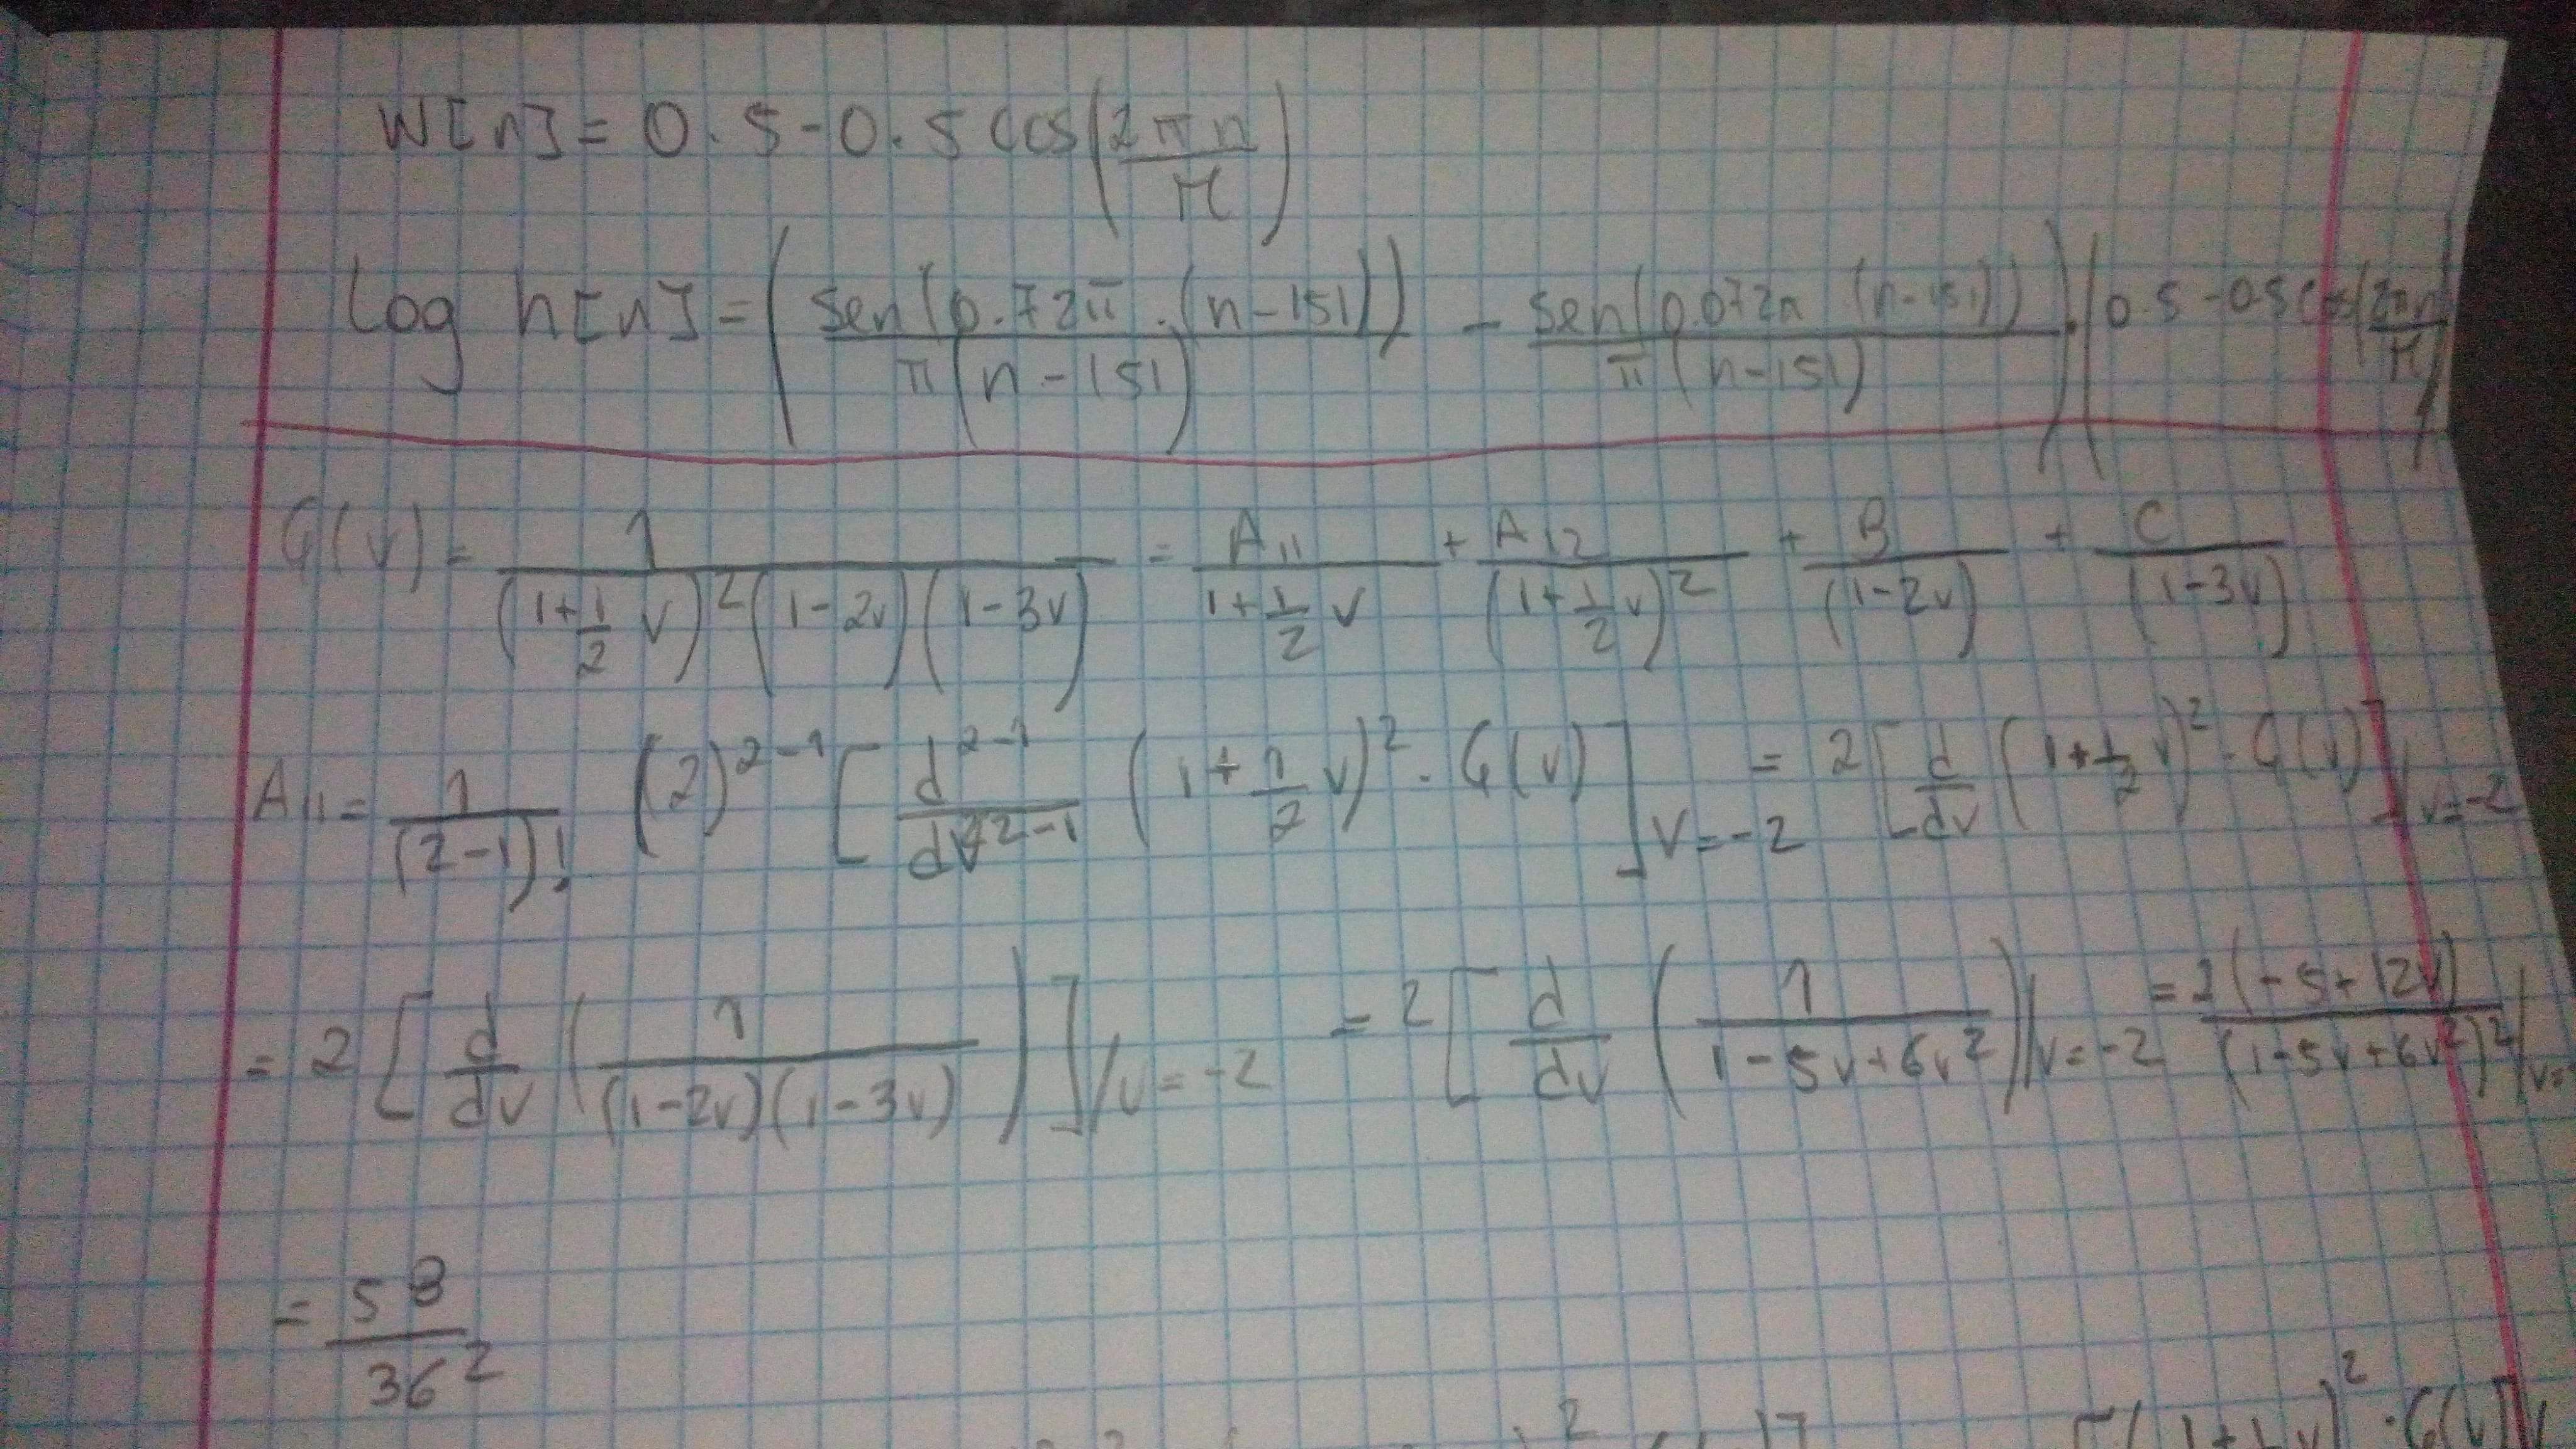 W[n] = 0.5 - 0.5 cos(2πn/M)
Log h[n] = (sen(0.72π·(n-151))/π(n-151) - sen(0.072π·(n-151))/π(n-151))·(0.5-0.5cos(2πn/M))
G(v) = 1/((1+1/2 v)^2(1-2v)(1-3v)) = A11/(1+1/2 v) + A12/(1+1/2 v)^2 + B/(1-2v) + C/(1-3v)
A11 = 1/(2-1)! (2)^2-1 [d^2-1/dv^2-1 (1+1/2 v)^2 · G(v)] v=-2 = 2[d/dv (1+1/2 v)^2 · G(v)] v=-2
= 2[d/dv (1/((1-2v)(1-3v)))]/v=-2 = 2[d/dv (1/(1-5v+6v^2))/v=-2 = 2(-5+12v)/(1-5v+6v^2)^2 /v=
= 58/36^2